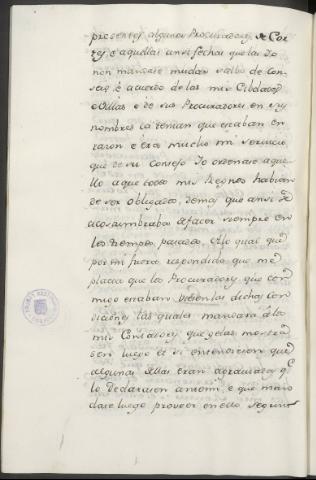 presentes algunos Procuradores de Cor
tes e aquellas ansi fechas que las Yo
non mandase mudar salbo de con
sejo è acuerdo de las mis Cibdades
e Villas e de sus Procuradores en sus
nombres ca tenian que estaban en
razon e era mucho mi servicio
que de su consejo Yo ordenase aque
llo a que todos mis Regnos habian
de ser obligados, demas que ansi se
acostumbraba a facer siempre en
los tiempos pasados. A lo qual que
por mi fuera respondido que me
placia que los Procuradores que con
migo estaban viesen las dichas con
diciones las quales mandara à los
mis Contadores que gelas mostra
sen luego et si entendiesen que
algunas dellas eran agraviadas q.
lo declarasen a mi è que manda
dase luego proveer en ello segunt